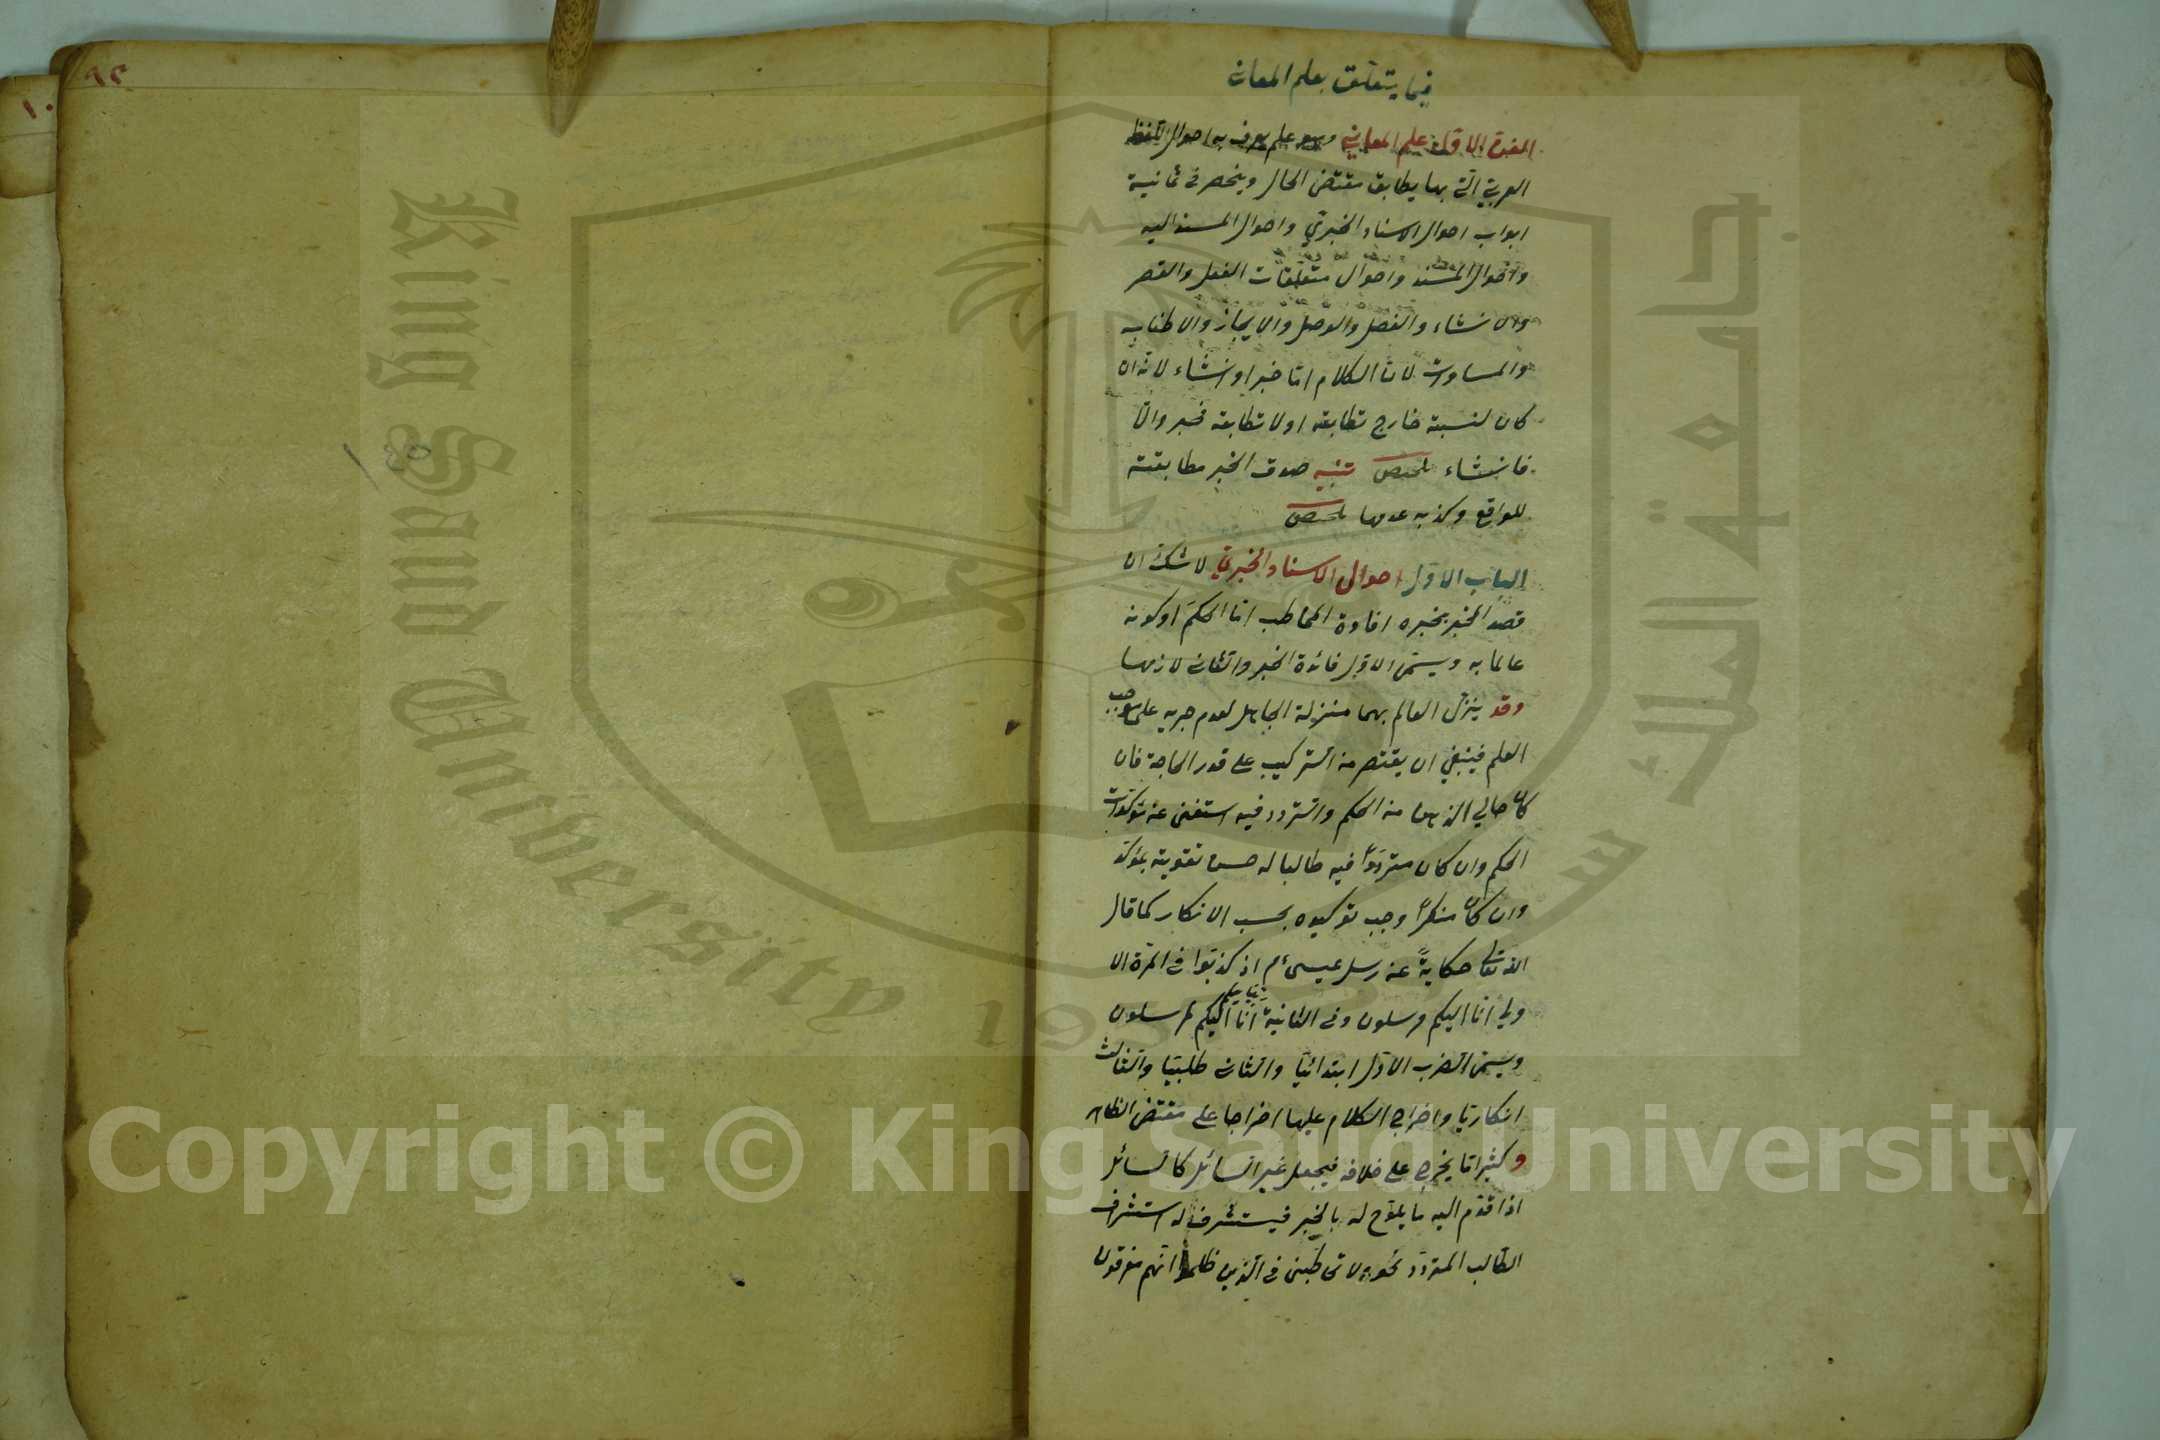 فيما يتعلق بعلم المعاني
الاول علم المعاني وهو علم يعرف به احوال اللفظ
العربي التي بها يطابق مقتضى الحال وينحصر في ثمانية
ابواب احوال الاسناد الخبري واحوال المسند اليه
واحوال المسند واحوال متعلقات الفعل والقصر
والانشاء والفصل والوصل والايجاز والاطناب
والمساوات لان الكلام اما خبر او انشاء لانه ان
كان لنسبته خارج تطابقه او لا تطابقه فخبر والا
فانشاء تلخيص تنبيه صدق الخبر مطابقته
للواقع وكذبه عدمها تلخيص
الباب الاول احوال الاسناد الخبري لا شك ان
قصد المخبر بخبره افادة المخاطب اما الحكم او كونه
عالما به ويسمى الاول فائدة الخبر والثاني لازمها
وقد ينزل العالم بهما منزلة الجاهل لعدم جريه على موجب
العلم فينبغي ان يقتصر من التركيب على قدر الحاجة فان
كان خالي الذهن من الحكم والتردد فيه استغنى عن مؤكدات
الحكم وان كان مترددا فيه طالبا له حسن تقويته بمؤكد
وان كان منكرا وجب توكيده بحسب الانكار كما قال
الله تعالى حكاية عن رسل عيسى ءم اذ كذبوا في المرة الا
ولى انا اليكم مرسلون وفي الثانية انا اليكم لمرسلون
ويسمى الضرب الاول ابتدائيا والثاني طلبيا والثالث
انكاريا واخراج الكلام عليها اخراجا على مقتضى الظاهر
وكثيرا ما يخرج على خلافه فيجعل غير السائل كالسائل
اذا قدم اليه ما يلوح له بالخبر فيستشرف له استشراف
الطالب المتردد نحو ولا تخاطبني في الذين ظلموا انهم مغرقون
King Saud University
جامعة الملك سعود
Copyright © King Saud University